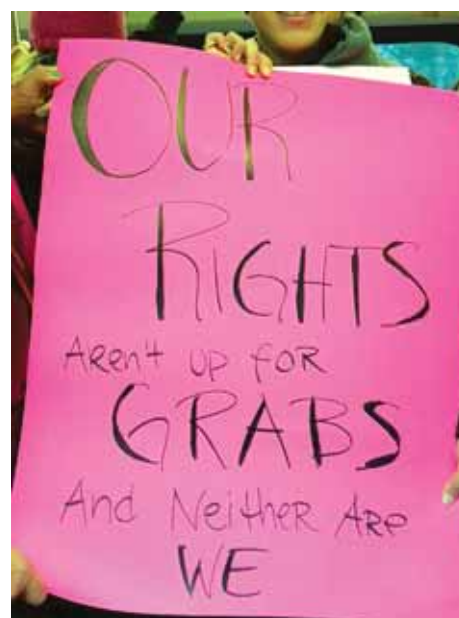 OUR
RIGHTS
Aren't up for
GRABS
And Neither Are
WE